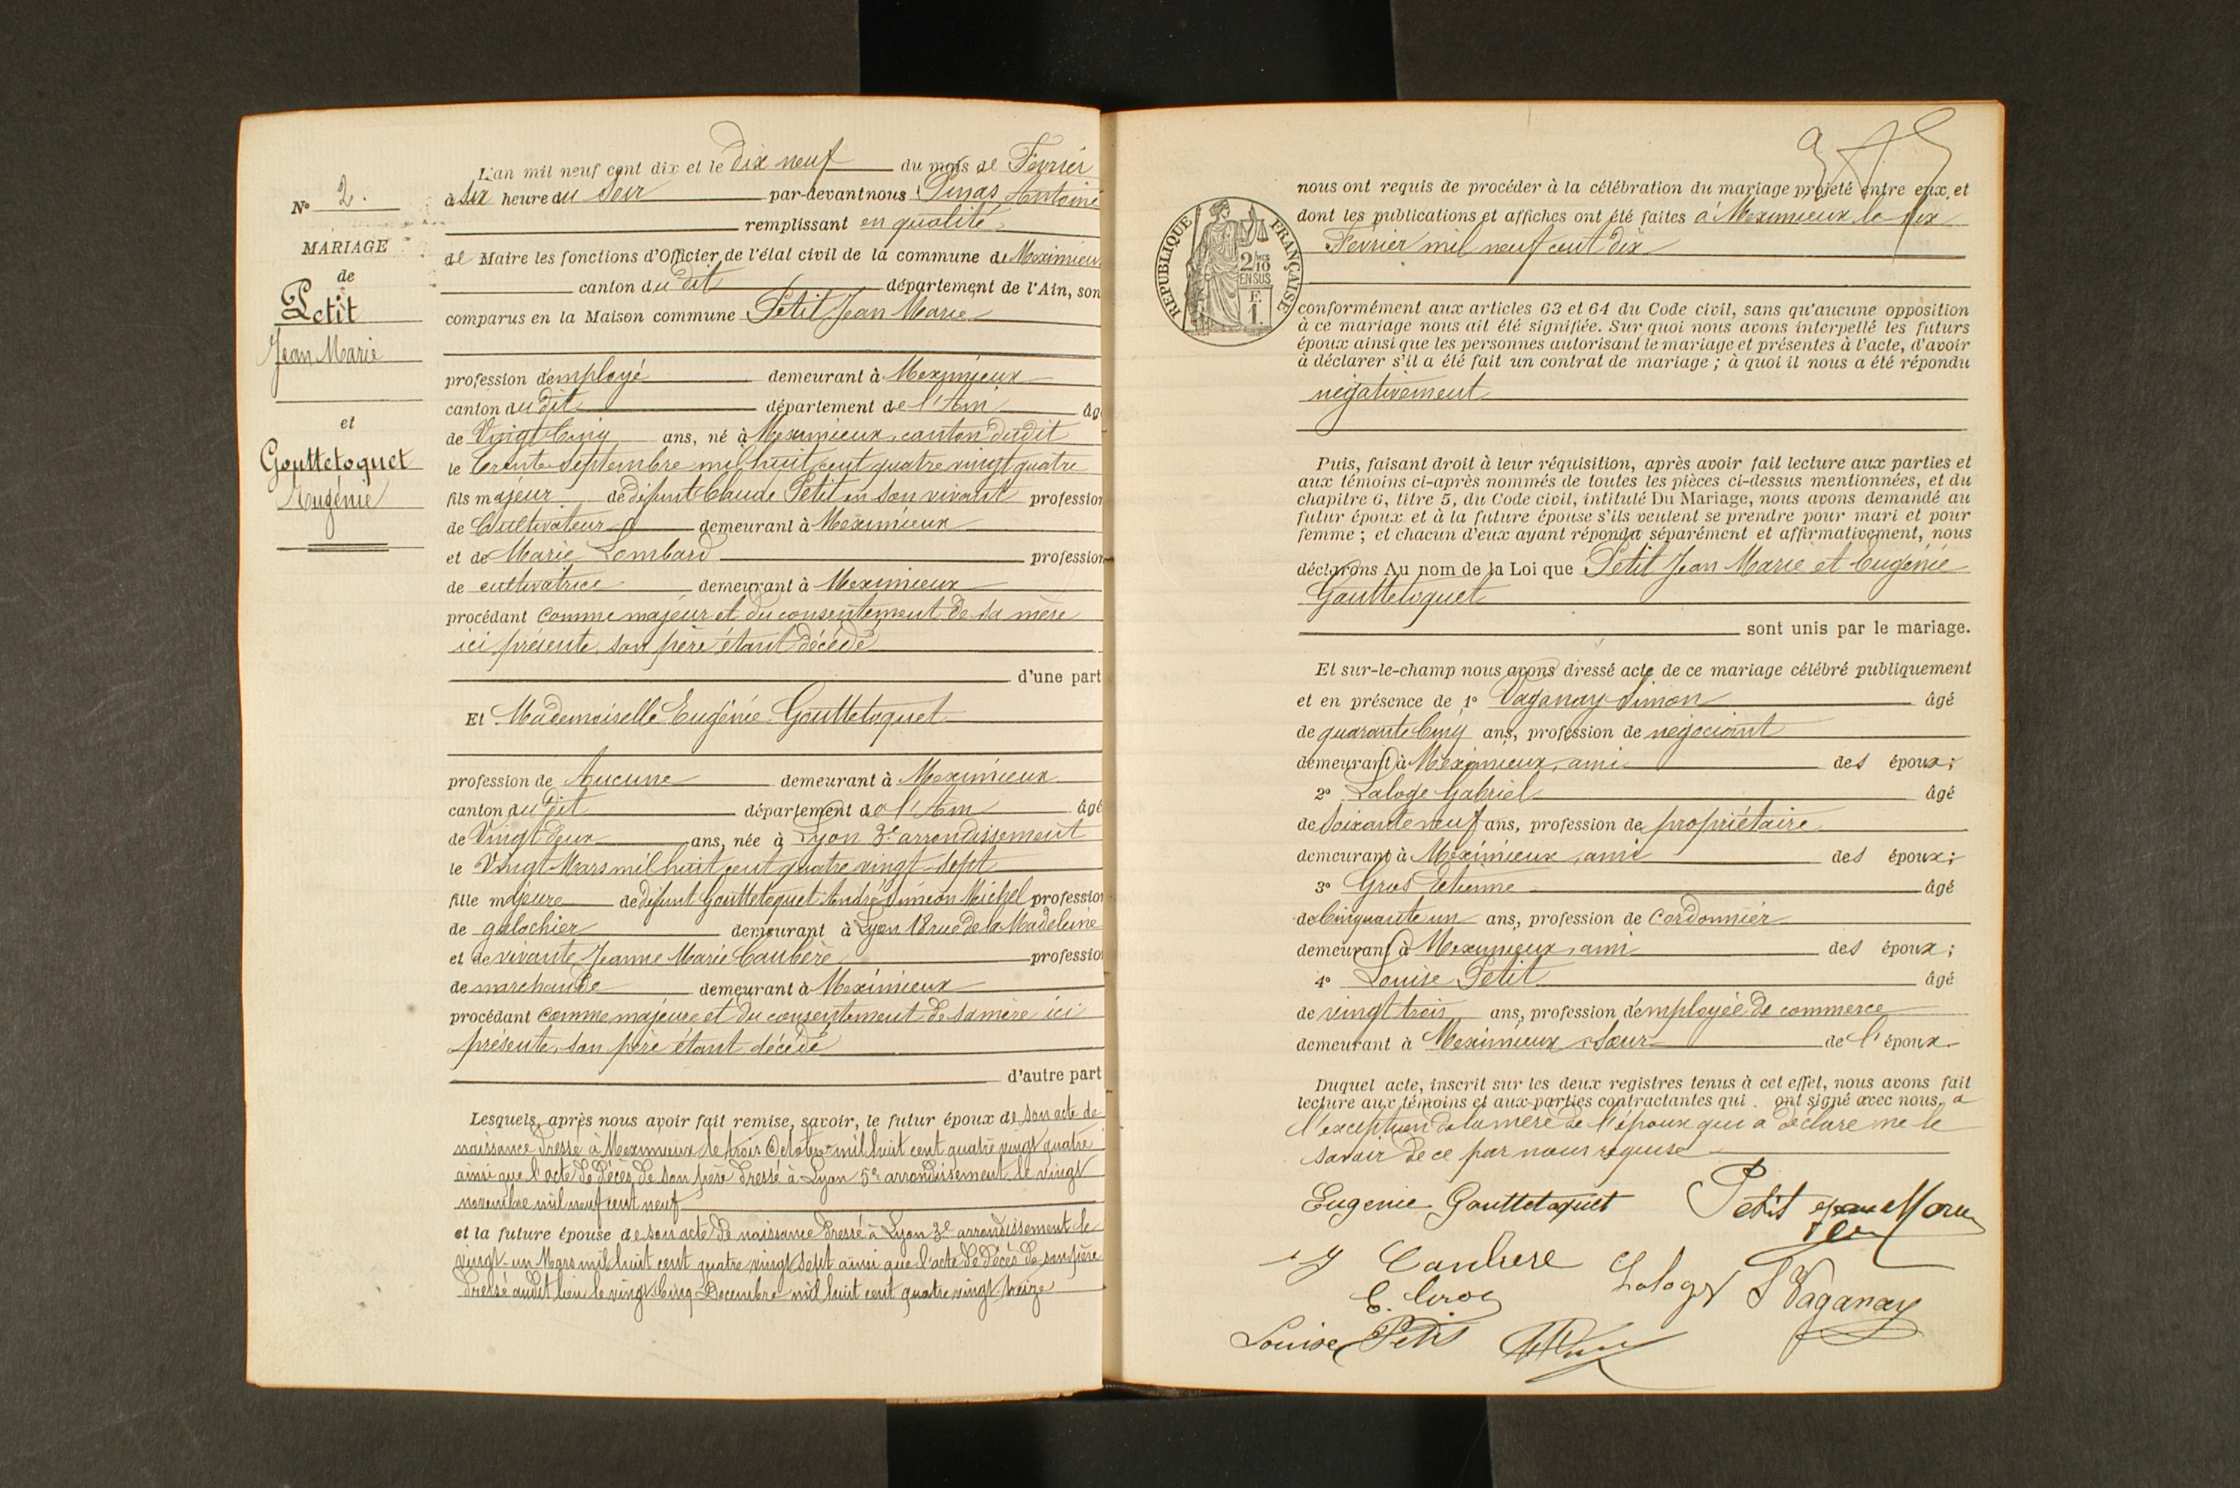 L'an mil neuf cent dix et le dix neuf du mois de Fevrier
à Six heure du Soir par-devant nous Antoine
remplissant en qualité
de Maire les fonctions d'Officier de l'état civil de la commune de Meximieux
canton du dit département de l'Ain, son
comparus en la Maison commune Petit Jean Marie
N° 2.
MARIAGE
de
Petit
Jean Marie
et
Gouttetoquet
Eugénie
profession d'employé demeurant à Meximieux
canton du dit département de l'Ain âgé
de Vingt Cinq ans, né à Meximieux, canton dudit
le trente Septembre mil huit cent quatre vingt quatre
fils majeur de défunt Claude Petit en son vivant profession
de Cultivateur demeurant à Meximieux
et de Marie Lombard profession
de cultivatrice demeurant à Meximieux
procédant comme majeur et du consentement de sa mère
ici présente, son père étant décédé
d'une part
Et Mademoiselle Eugénie Gouttetoquet
profession de Aucune demeurant à Meximieux
canton du dit département de l'Ain âgé
de Vingt deux ans, née à Lyon 3e arrondissement
le Vingt Mars mil huit cent quatre vingt-sept
fille majeure de défunt Gouttetoquet André Siméon Michel profession
de galochier demeurant à Lyon 18 rue de la Madeleine
et de vivante Jeanne Marie Caubère profession
de marchande demeurant à Meximieux
procédant comme majeure et du consentement de sa mère ici
présente, son père étant décédé
d'autre part
Lesquels, après nous avoir fait remise, savoir, le futur époux de son acte de
naissance dressé à Meximieux le trois Octobre mil huit cent quatre vingt quatre
ainsi que l'acte de décès de son père dressé à Lyon 5e arrondissement le vingt
novembre mil neuf cent neuf
et la future épouse de son acte de naissance dressé à Lyon 3e arrondissement le
vingt-un Mars mil huit cent quatre vingt sept ainsi que l'acte de décès de son père
dressé audit lieu le vingt cinq Decembre mil huit cent quatre vingt treize
nous ont requis de procéder à la célébration du mariage projeté entre eux, et
dont les publications et affiches ont été faites à Meximieux le six
Fevrier mil neuf cent dix
REPUBLIQUE FRANÇAISE
2/10
EN SUS
F.
1
conformément aux articles 63 et 64 du Code civil, sans qu'aucune opposition
à ce mariage nous ait été signifiée. Sur quoi nous avons interpellé les futurs
époux ainsi que les personnes autorisant le mariage et présentes à l'acte, d'avoir
à déclarer s'il a été fait un contrat de mariage ; à quoi il nous a été répondu
négativement
Puis, faisant droit à leur réquisition, après avoir fait lecture aux parties et
aux témoins ci-après nommés de toutes les pièces ci-dessus mentionnées, et du
chapitre 6, titre 5, du Code civil, intitulé Du Mariage, nous avons demandé au
futur époux et à la future épouse s'ils veulent se prendre pour mari et pour
femme ; et chacun d'eux ayant répondu séparément et affirmativement, nous
déclarons Au nom de la Loi que Petit Jean Marie et Eugénie
Gouttetoquet
sont unis par le mariage.
Et sur-le-champ nous avons dressé acte de ce mariage célébré publiquement
et en présence de 1° Vaganay Simon âgé
de quarante Cinq ans, profession de négociant
demeurant à Meximieux, ami des époux ;
2° Laloge Gabriel âgé
de Soixante neuf ans, profession de propriétaire
demeurant à Meximieux, ami des époux ;
3° Gros Etienne âgé
de Cinquante un ans, profession de Cordonnier
demeurant à Meximieux, ami des époux ;
4° Louise Petit âgé
de vingt trois ans, profession d'employée de commerce
demeurant à Meximieux, Sœur de l'époux
Duquel acte, inscrit sur les deux registres tenus à cet effet, nous avons fait
lecture aux témoins et aux parties contractantes qui ont signé avec nous, a
l'exception de la mère de l'époux qui a déclaré ne le
savoir de ce par nous requise
Eugenie Gouttetoquet Petit Jean Marie
Caubere Laloge S Vaganay
E. Gros
Louise Petit